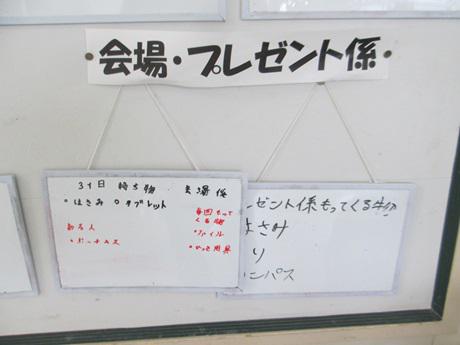 会場・プレゼント係
31日 持ち物 会場係
・はさみ ・タブレット
毎回もって
くる物
ある人
・ファイル
・ボーナス
レゼント係もってくる物
はさみ
り
ンパス